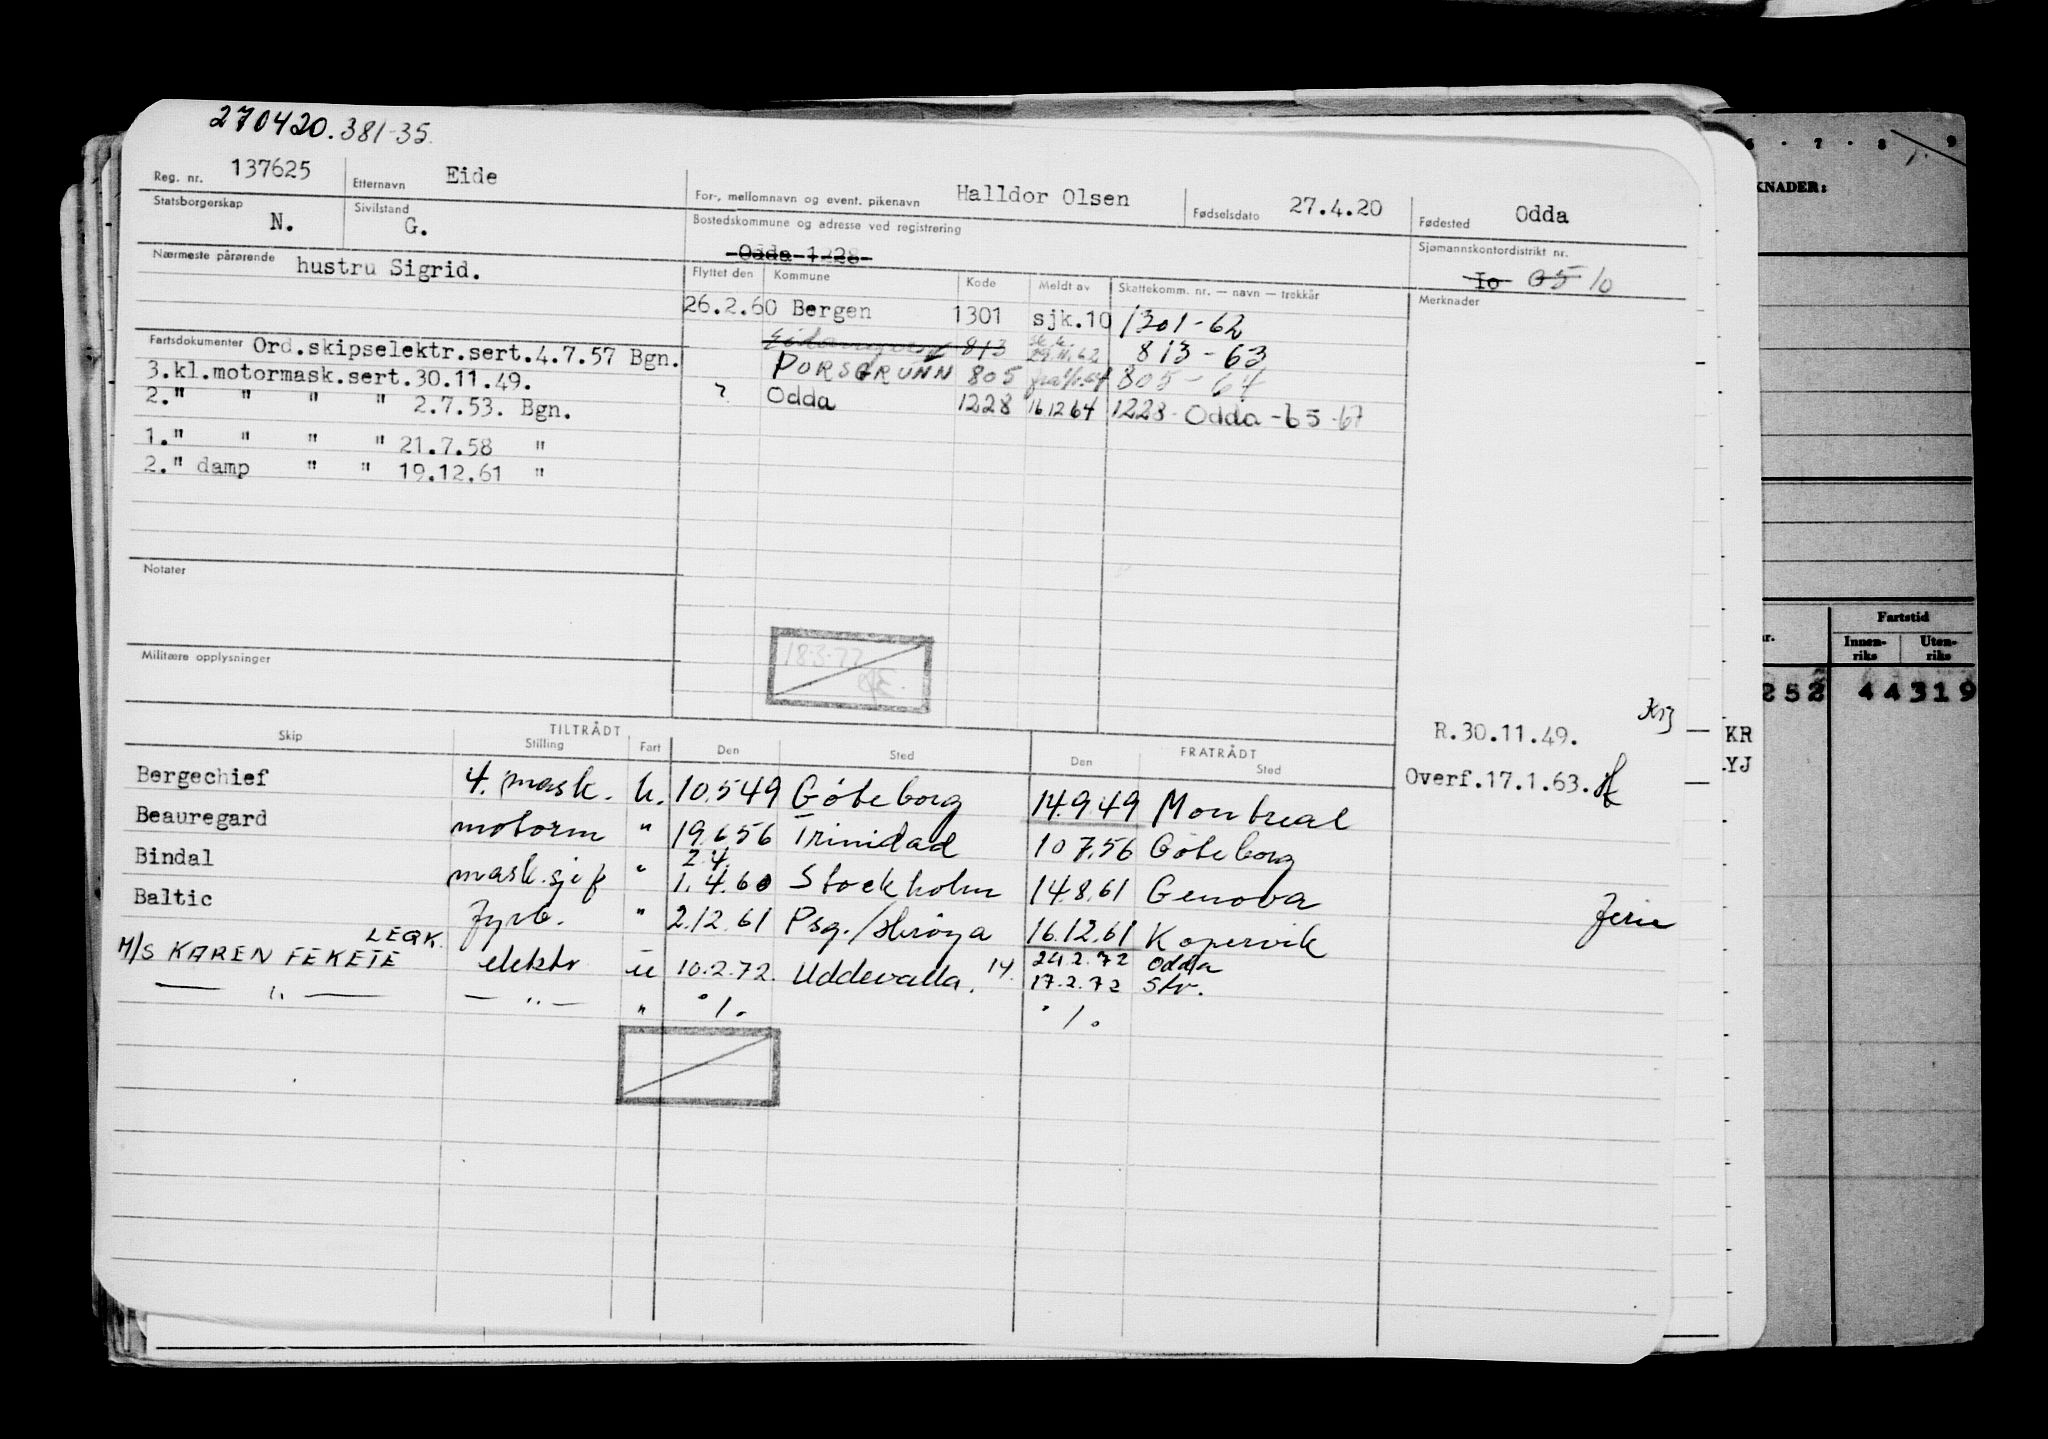 270420.381-35.
Reg. nr. 137625 Etternavn Eide For-, mellomnavn og event. pikenavn Halldor Olsen Fødselsdato 27.4.20 Fødested Odda
Statsborgerskap N. Sivilstand G. Bostedskommune og adresse ved registrering Odda 1228 Sjømannskontordistrikt nr. Io 05 10
Nærmeste pårørende hustru Sigrid.
Flyttet den Kommune Kode Meldt av Skattekomm. nr. — navn — trekkår Merknader
26.2.60 Bergen 1301 sjk.10 1301-62
813 29.11.62 813-63
PORSGRUNN 805 805-64
? Odda 1228 16 12 64 1228-Odda-65-67
Fartsdokumenter Ord.skipselektr.sert.4.7.57 Bgn.
3.kl.motormask.sert.30.11.49.
2." " " " 2.7.53. Bgn.
1." " " " 21.7.58 "
2." damp " " 19.12.61 "
Notater
Militære opplysninger
18.3.77
R.30.11.49.
Overf.17.1.63.
TILTRÅDT FRATRÅDT
Skip Stilling Fart Den Sted Den Sted
Bergechief 4. mask. u. 10.5 49 Göteborg 14.9.49 Montreal
Beauregard motorm " 19.6 56 Trinidad 10 7.56 Göteborg
2.4.
Bindal mask.sjef " 1.4.60 Stockholm 14.8.61 Genova Ferie
Baltic fyrb. " 2.12.61 Psg./Herøya 16.12.61 Kopervik
LEQK.
M/S KAREN FEKETE elektr u 10.2.72. Uddevalla. 14. 24.2.72 Odda
17.2.72 Str.
— " — — " — " ./. ./.
6 . 7 . 8 9
KNADER:
Fartstid
nr. Innen-riks Uten-riks
252 44319
KR
YJ